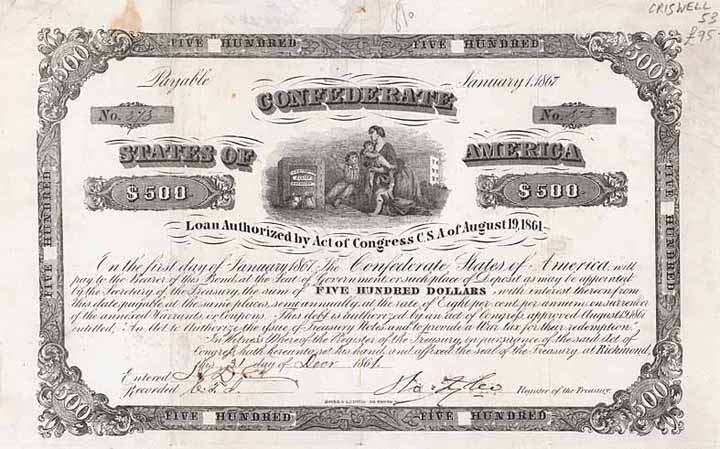 CRISWELL
53
£95-
FIVE HUNDRED FIVE HUNDRED
500 500
Payable January 1. 1867
CONFEDERATE
No. 373 No. 373
STATES OF AMERICA
$500 $500
FIVE HUNDRED FIVE HUNDRED
Loan Authorized by Act of Congress C.S.A of August 19, 1861
On the first day of January 1867, The Confederate States of America, will
pay to the Bearer of this Bond, at the Seat of Government, or such place of Deposit as may be appointed
by the Secretary of the Treasury, the sum of FIVE HUNDRED DOLLARS with interest from
this date, payable at the same places, semi annually, at the rate of Eight per cent per annum, on surrender
of the annexed Warrants, or Coupons. This debt is authorized by an act of Congress approved August 19, 1861
entitled, "An Act to Authorize the issue of Treasury Notes, and to provide a War tax for their redemption."
In Witness Whereof the Register of the Treasury, in pursuance of the said Act of
Congress, hath hereunto set his hand, and affixed the seal of the Treasury, at Richmond,
this day of Decr 1861.
Entered
Recorded Register of the Treasury.
500 500
FIVE HUNDRED FIVE HUNDRED